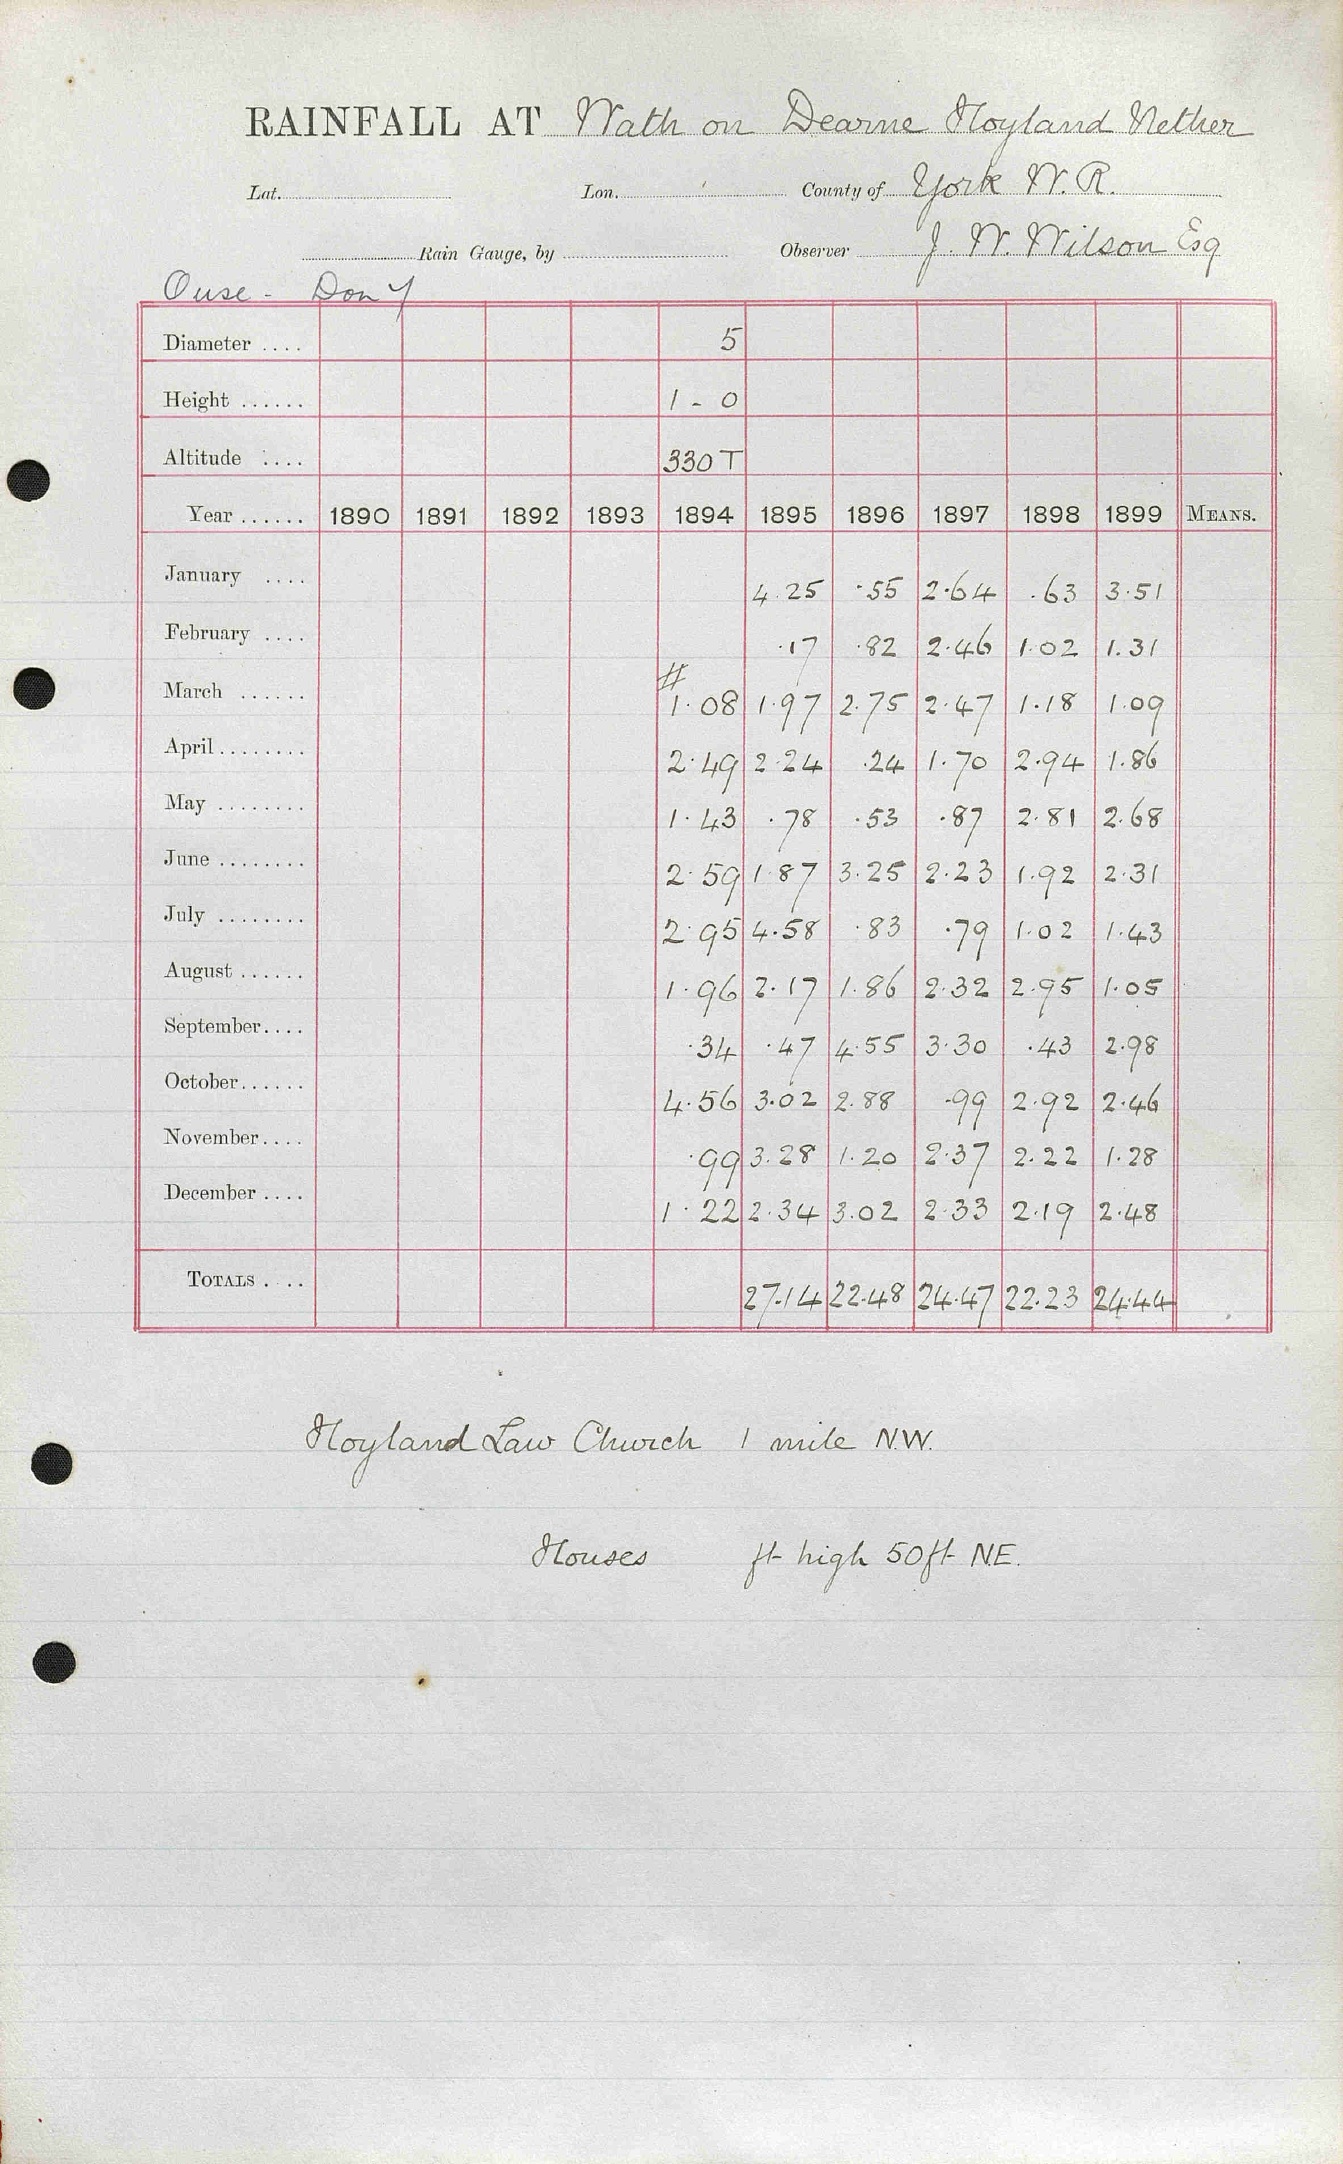 RAINFALL AT Wath on Dearne Hoyland Nether
Lat. Lon. County of York W.R.
Rain Gauge, by Observer J. W. Wilson Esq
Ouse - Don Y
Diameter .... 5
Height ...... 1 - 0
Altitude .... 330 T
Year ...... 1890 1891 1892 1893 1894 1895 1896 1897 1898 1899 MEANS.
January .... 4.25 .55 2.64 .63 3.51
February .... .17 .82 2.46 1.02 1.31
March ...... # 1.08 1.97 2.75 2.47 1.18 1.09
April ........ 2.49 2.24 .24 1.70 2.94 1.86
May ........ 1.43 .78 .53 .87 2.81 2.68
June ........ 2.59 1.87 3.25 2.23 1.92 2.31
July ........ 2.95 4.58 .83 .79 1.02 1.43
August ...... 1.96 2.17 1.86 2.32 2.95 1.05
September.... .34 .47 4.55 3.30 .43 2.98
October...... 4.56 3.02 2.88 .99 2.92 2.46
November.... .99 3.28 1.20 2.37 2.22 1.28
December .... 1.22 2.34 3.02 2.33 2.19 2.48
TOTALS .... 27.14 22.48 24.47 22.23 24.44
Hoyland Law Church 1 mile N.W.
Houses ft high 50ft NE.